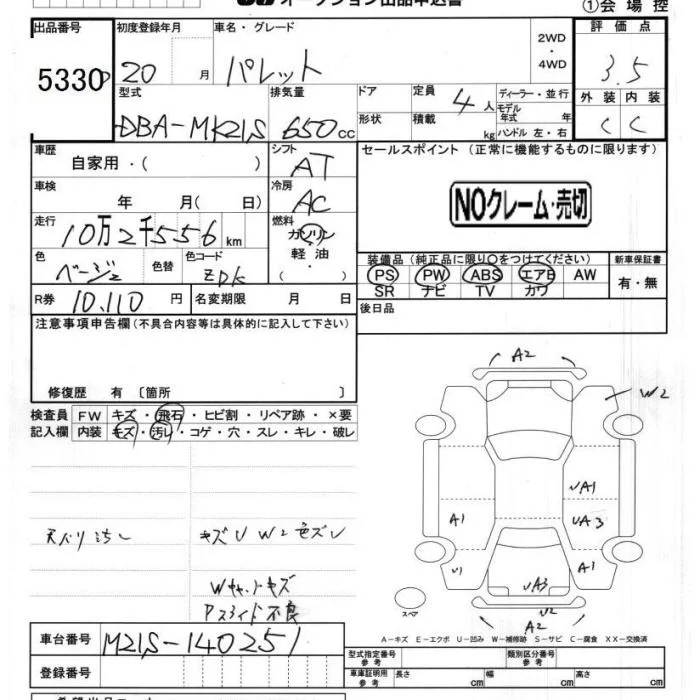 オークション出品申込書
①会場控
出品番号 初度登録年月 車名・グレード 2WD・4WD 評価点
5330 20 月 パレット 3.5
型式 排気量 ドア 定員 4人 ディーラー・並行
モデル年式 年
外装 内装
DBA-MK21S 650cc 形状 積載 kg ハンドル 左・右 C C
車歴 シフト セールスポイント (正常に機能するものに限ります)
自家用・( ) AT
車検 冷房
年 月( 日) AC NOクレーム・売切
走行 燃料
10万2千556km ガソリン
軽油・( )
色 色替 色コード
ベージュ ZDK
装備品(純正品に限り○をつけてください) 新車保証書
PS PW ABS エアB AW 有・無
SR ナビ TV カワ
R券 10,110円 名変期限 月 日 後日品
注意事項申告欄(不具合内容等は具体的に記入して下さい)
修復歴 有〔箇所 〕
検査員 FW キズ・飛石・ヒビ割・リペア跡・×要
記入欄 内装 キズ・汚レ・コゲ・穴・スレ・キレ・破レ
キズU W2 色ズレ
Pスライド不良
A2
W2
UA1
A1 UA3
A1
UA3
U2
A2
スペア
A-キズ E-エクボ U-凹み W-補修跡 S-サビ C-腐食 XX-交換済
車台番号 M21S-140251
型式指定番号 参考 類別区分番号 参考
登録番号
車庫証明用 参考 長さ cm 幅 cm 高さ cm